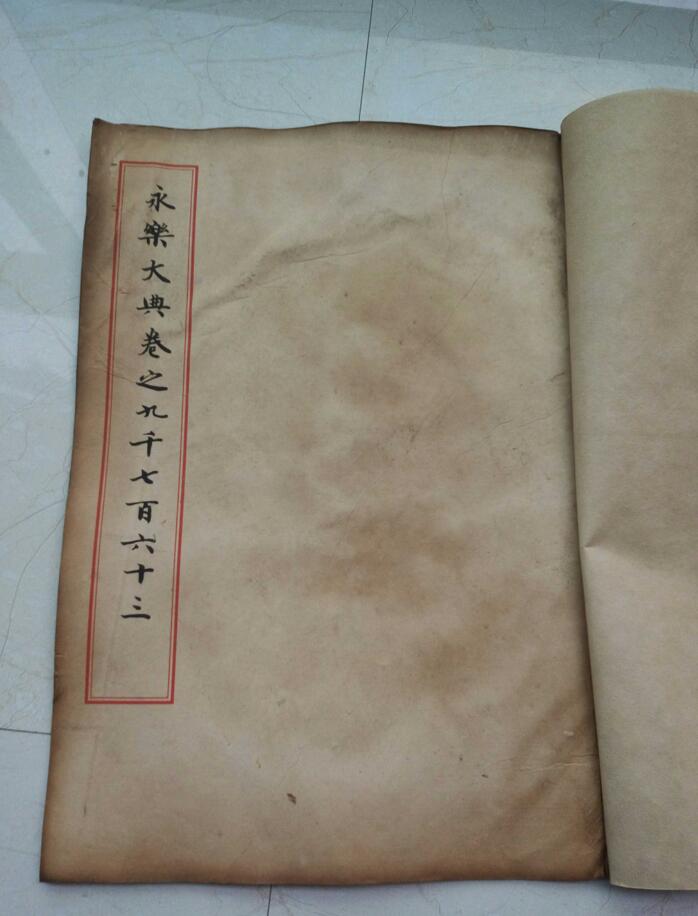 永樂大典卷之九千七百六十三